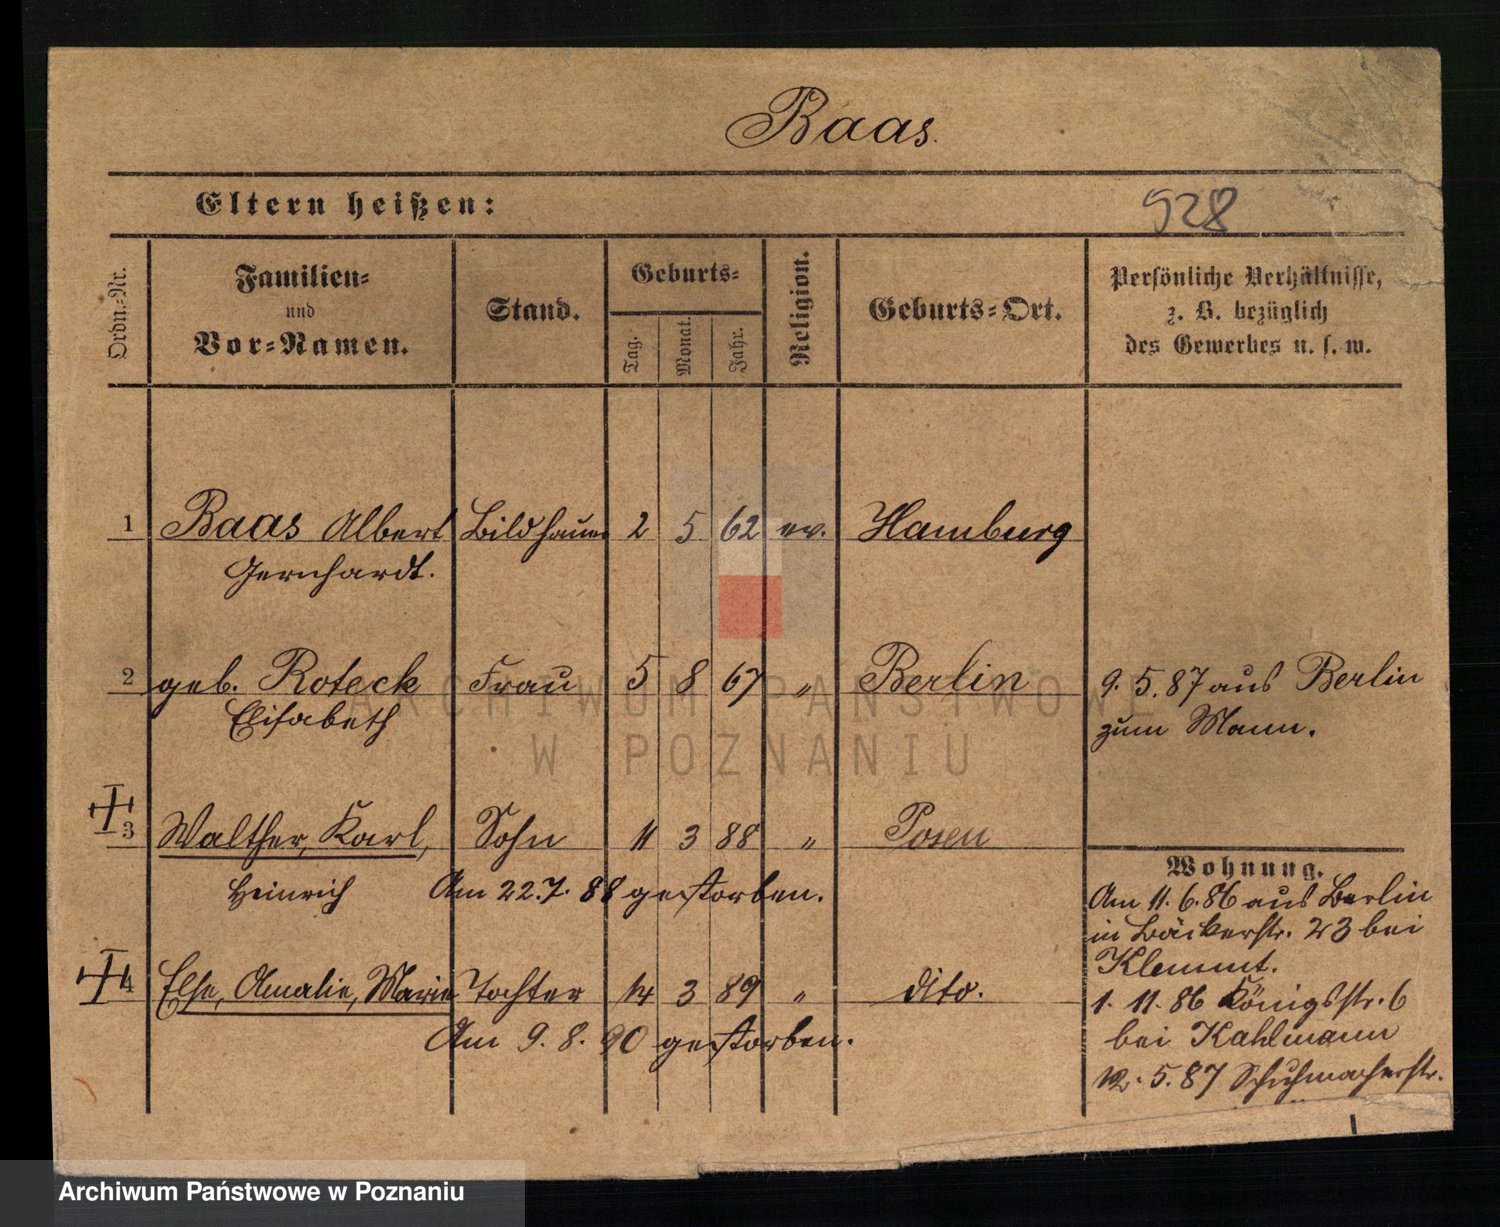 Baas.
Eltern heißen:
928
Ordn.-Nr.
Familien-
und
Vor-Namen.
Stand.
Geburts-
Tag.
Monat.
Jahr.
Religion.
Geburts-Ort.
Persönliche Verhältnisse,
z. B. bezüglich
des Gewerbes u. s. w.
1 Baas Albert Bildhauer 2 5 62 ev. Hamburg
Gernhardt.
2 geb. Roteck Frau 5 8 67 " Berlin 9. 5. 87 aus Berlin
Elisabeth zum Mann.
3 Walther, Karl, Sohn 11 3 88 " Posen
Heinrich Am 22.7. 88 gestorben.
4 Else, Amalie, Marie Tochter 14 3 89 " dito.
Am 9. 8. 90 gestorben.
Wohnung.
Am 11. 6. 86 aus Berlin
in Bäckerstr. 23 bei
Klemmt.
1. 11. 86 Königsstr. 6
bei Kahlmann
12. 5. 87 Schuhmacherstr.
ARCHIWUM PAŃSTWOWE
W POZNANIU
Archiwum Państwowe w Poznaniu